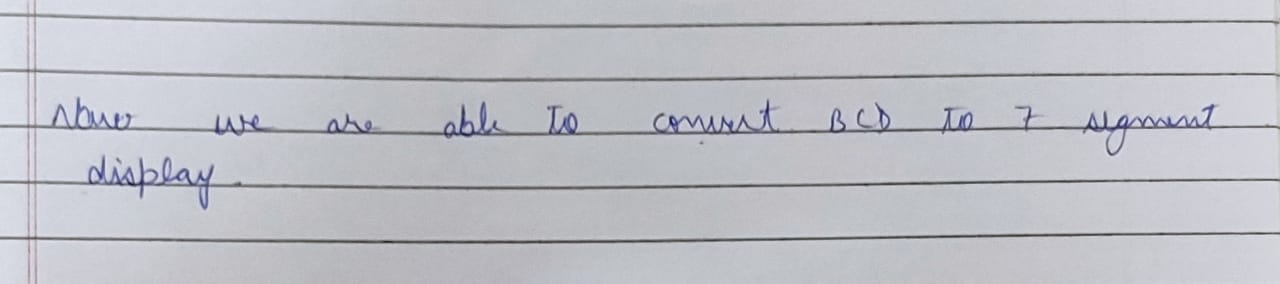 Now we are able to convert BCD to 7 segment
display.